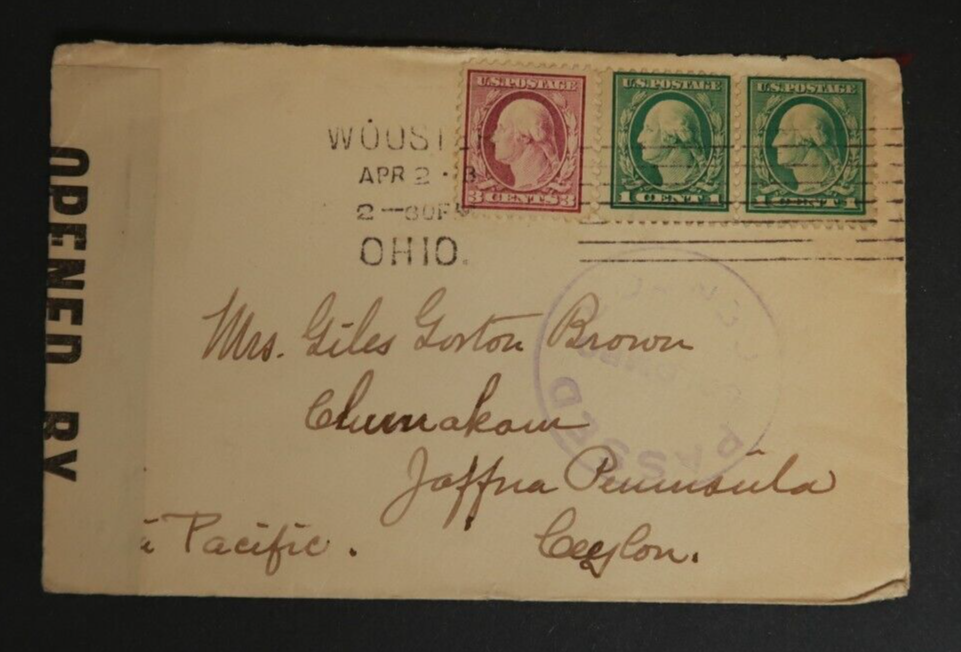 OPENED BY
U.S.POSTAGE
3 CENTS 3
U.S.POSTAGE
1 CENT 1
U.S.POSTAGE
1 CENT 1
WOOSTE
APR 2
2—30P
OHIO.
PASSED
Mrs. Giles Gorton Brown
Chunakam
Jaffna Peninsula
Ceylon.
Pacific.